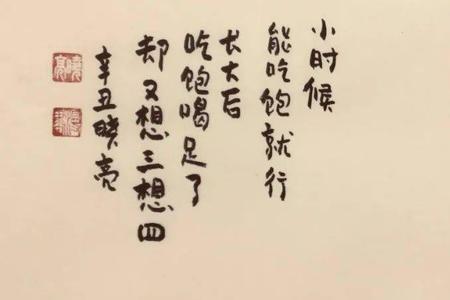 小时候
能吃饱就行
长大后
吃饱喝足了
却又想三想四
辛丑晓亮